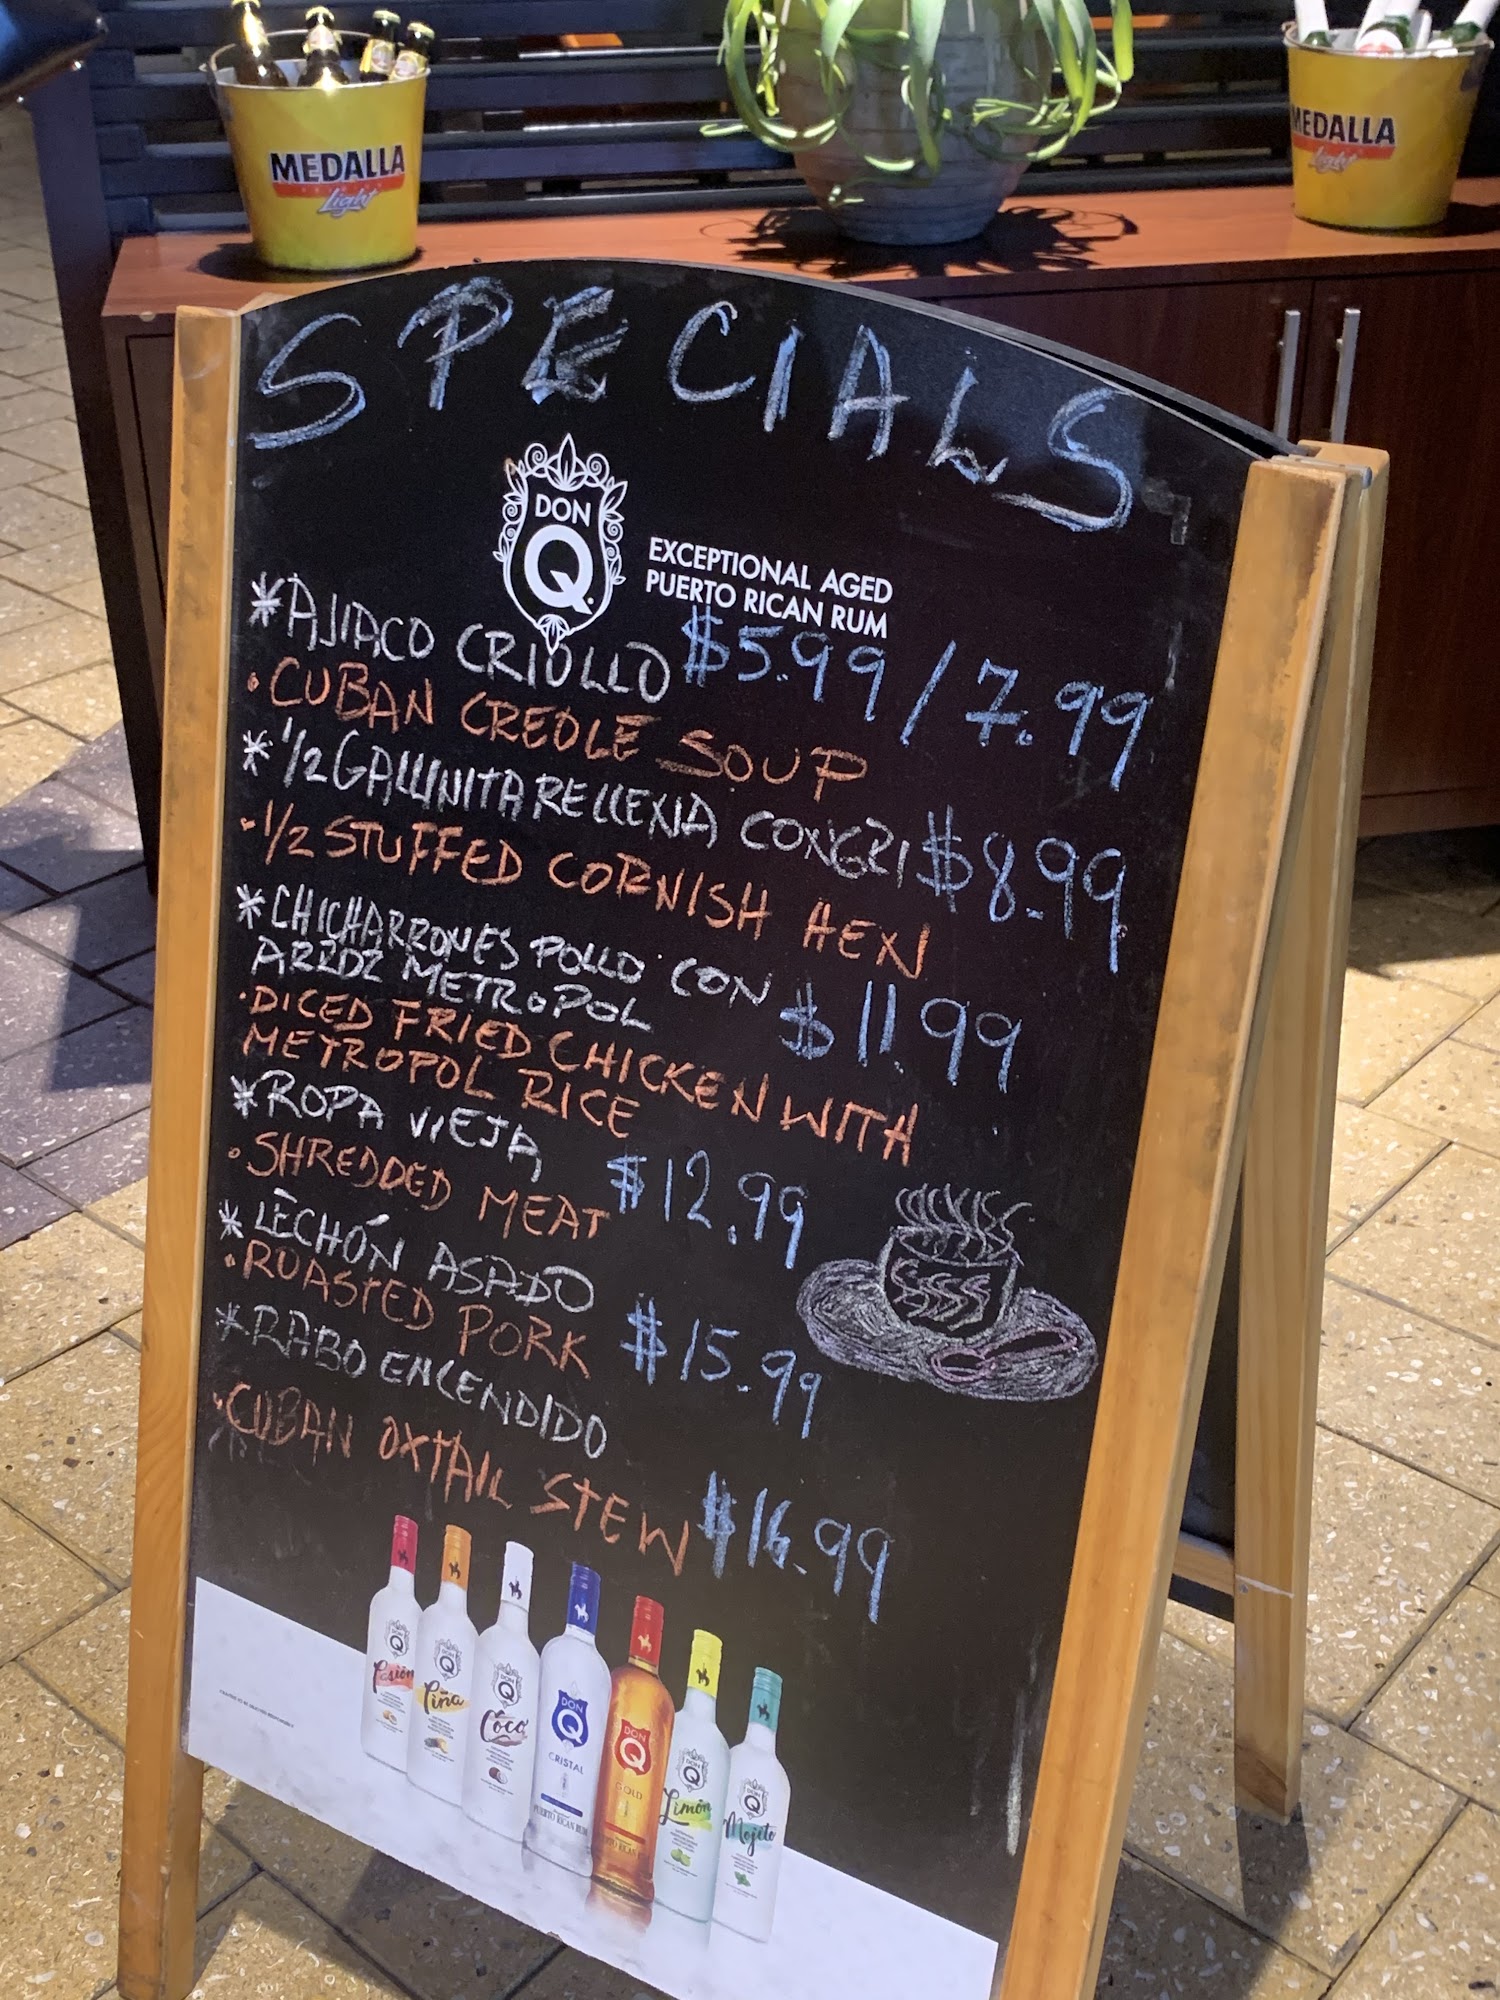 MEDALLA
Light
MEDALLA
Light
SPECIALS
DON
Q
EXCEPTIONAL AGED
PUERTO RICAN RUM
*AJIACO CRIOLLO $5.99/7.99
·CUBAN CREOLE SOUP
*1/2 GALLINITA RELLENA CONGRI $8.99
·1/2 STUFFED CORNISH HEN
*CHICHARRONES POLLO CON
ARROZ METROPOL $11.99
·DICED FRIED CHICKEN WITH
METROPOL RICE
*ROPA VIEJA
·SHREDDED MEAT $12.99
*LECHÓN ASADO
·ROASTED PORK $15.99
*RABO ENCENDIDO
·CUBAN OXTAIL STEW $16.99
DON Q Pasión
DON Q Piña
DON Q Coco
DON Q CRISTAL PUERTO RICAN RUM
DON Q GOLD
DON Q Limón
DON Q Mojito